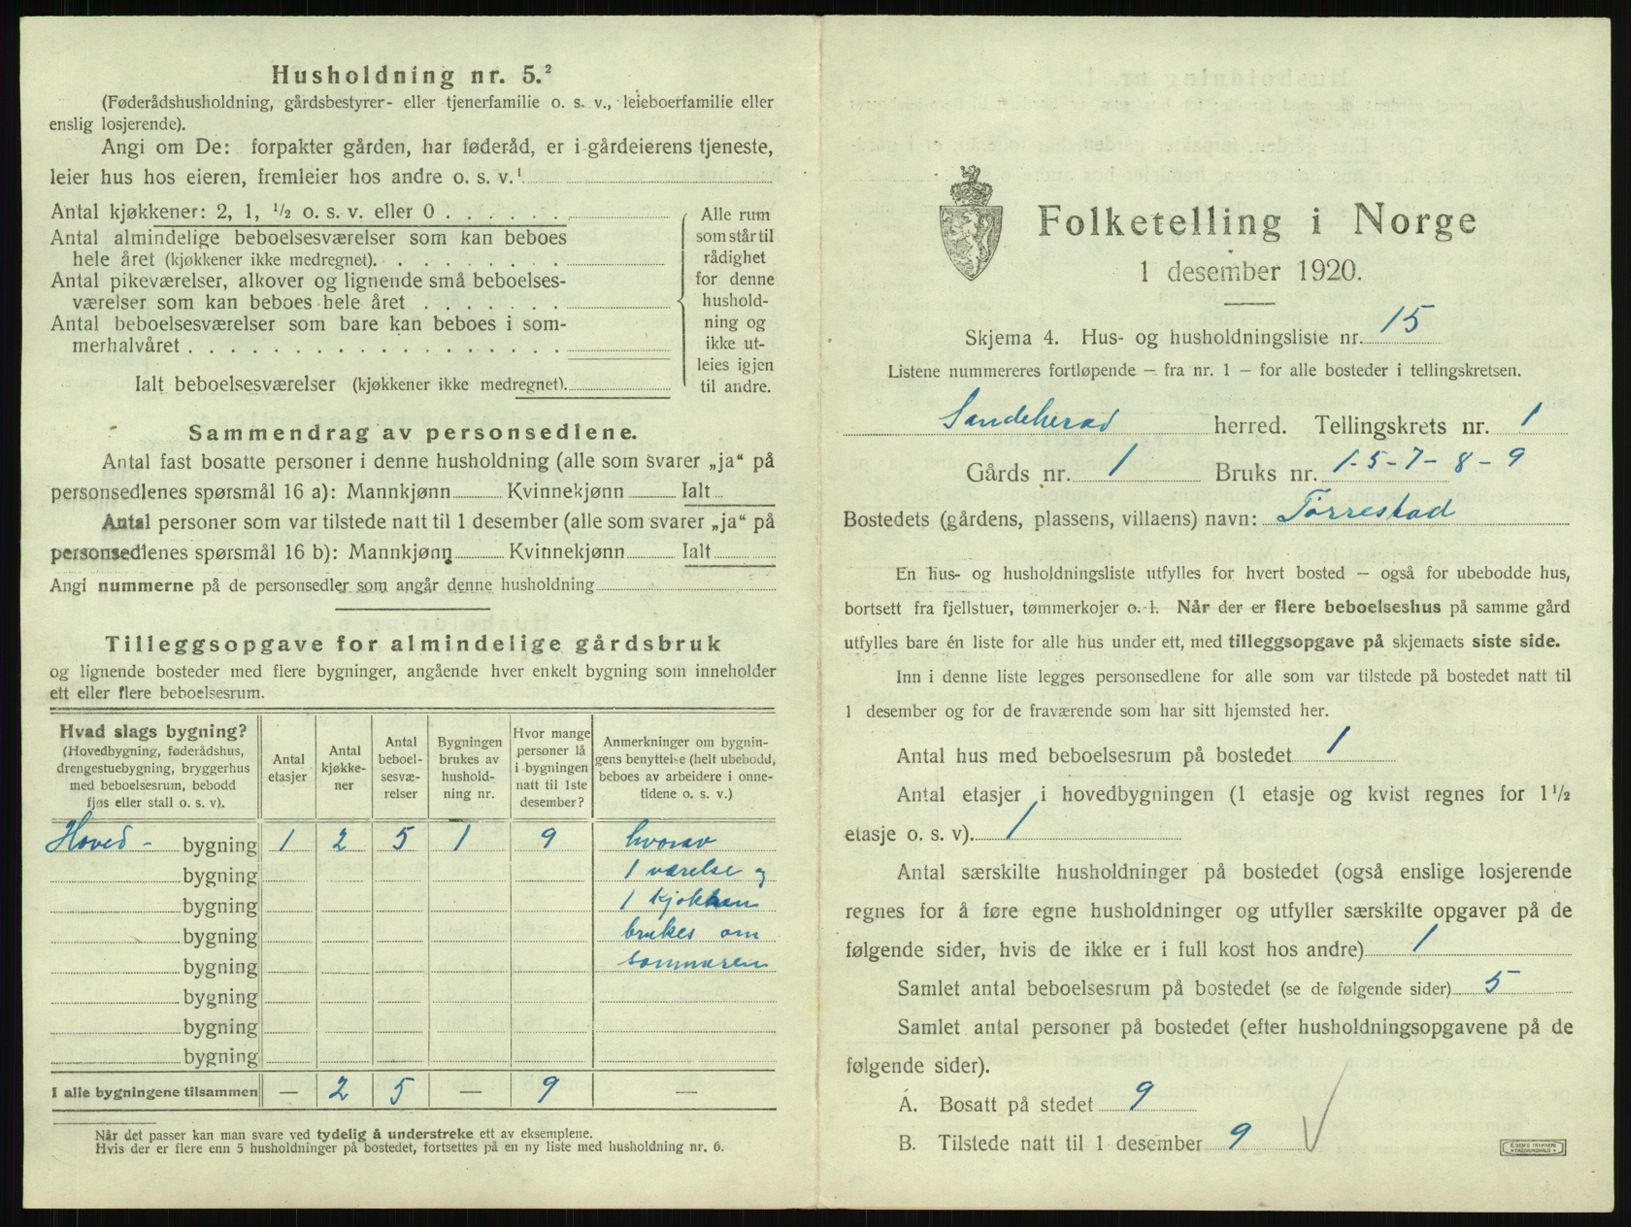 Husholdning nr. 5.²
(Føderådshusholdning, gårdsbestyrer- eller tjenerfamilie o. s. v., leieboerfamilie eller
enslig losjerende).
Angi om De: forpakter gården, har føderåd, er i gårdeierens tjeneste,
leier hus hos eieren, fremleier hos andre o. s. v.¹
Antal kjøkkener: 2, 1, ½ o. s. v. eller 0 . . . . . .
Antal almindelige beboelsesværelser som kan beboes
hele året (kjøkkener ikke medregnet). . . . . . . . .
Antal pikeværelser, alkover og lignende små beboelses-
værelser som kan beboes hele året . . . . . . .
Antal beboelsesværelser som bare kan beboes i som-
merhalvåret . . . . . . . . . . . . . . . . . .
Ialt beboelsesværelser (kjøkkener ikke medregnet).
Alle rum
som står til
rådighet
for denne
hushold-
ning og
ikke ut-
leies igjen
til andre.
Sammendrag av personsedlene.
Antal fast bosatte personer i denne husholdning (alle som svarer „ja“ på
personsedlenes spørsmål 16 a): Mannkjønn Kvinnekjønn Ialt
Antal personer som var tilstede natt til 1 desember (alle som svarer „ja“ på
personsedlenes spørsmål 16 b): Mannkjønn Kvinnekjønn Ialt
Angi nummerne på de personsedler som angår denne husholdning
Tilleggsopgave for almindelige gårdsbruk
og lignende bosteder med flere bygninger, angående hver enkelt bygning som inneholder
ett eller flere beboelsesrum.
Hvad slags bygning?
(Hovedbygning, føderådshus,
drengestuebygning, bryggerhus
med beboelsesrum, bebodd
fjøs eller stall o. s. v).
Antal
etasjer
Antal
kjøkke-
ner
Antal
beboel-
sesvæ-
relser
Bygningen
brukes av
hushold-
ning nr.
Hvor mange
personer lå
i bygningen
natt til 1ste
desember?
Anmerkninger om bygnin-
gens benyttelse (helt ubebodd,
beboes av arbeidere i onne-
tidene o. s. v.)
Hoved - bygning 1 2 5 1 9 hvorav
bygning 1 værelse og
bygning 1 kjøkken
bygning brukes om
bygning sommeren
bygning
bygning
bygning
I alle bygningene tilsammen — 2 5 — 9 —
Når det passer kan man svare ved tydelig å understreke ett av eksemplene.
Hvis der er flere enn 5 husholdninger på bostedet, fortsettes på en ny liste med husholdning nr. 6.
Folketelling i Norge
1 desember 1920.
Skjema 4. Hus- og husholdningsliste nr. 15
Listene nummereres fortløpende — fra nr. 1 — for alle bosteder i tellingskretsen.
Sandeherad herred. Tellingskrets nr. 1
Gårds nr. 1 Bruks nr. 1-5-7-8-9
Bostedets (gårdens, plassens, villaens) navn: Torrestad
En hus- og husholdningsliste utfylles for hvert bosted — også for ubebodde hus,
bortsett fra fjellstuer, tømmerkojer o. l. Når der er flere beboelseshus på samme gård
utfylles bare én liste for alle hus under ett, med tilleggsopgave på skjemaets siste side.
Inn i denne liste legges personsedlene for alle som var tilstede på bostedet natt til
1 desember og for de fraværende som har sitt hjemsted her.
Antal hus med beboelsesrum på bostedet 1
Antal etasjer i hovedbygningen (1 etasje og kvist regnes for 1½
etasje o. s. v). 1
Antal særskilte husholdninger på bostedet (også enslige losjerende
regnes for å føre egne husholdninger og utfyller særskilte opgaver på de
følgende sider, hvis de ikke er i full kost hos andre) 1
Samlet antal beboelsesrum på bostedet (se de følgende sider) 5
Samlet antal personer på bostedet (efter husholdningsopgavene på de
følgende sider).
A. Bosatt på stedet 9
B. Tilstede natt til 1 desember 9 √